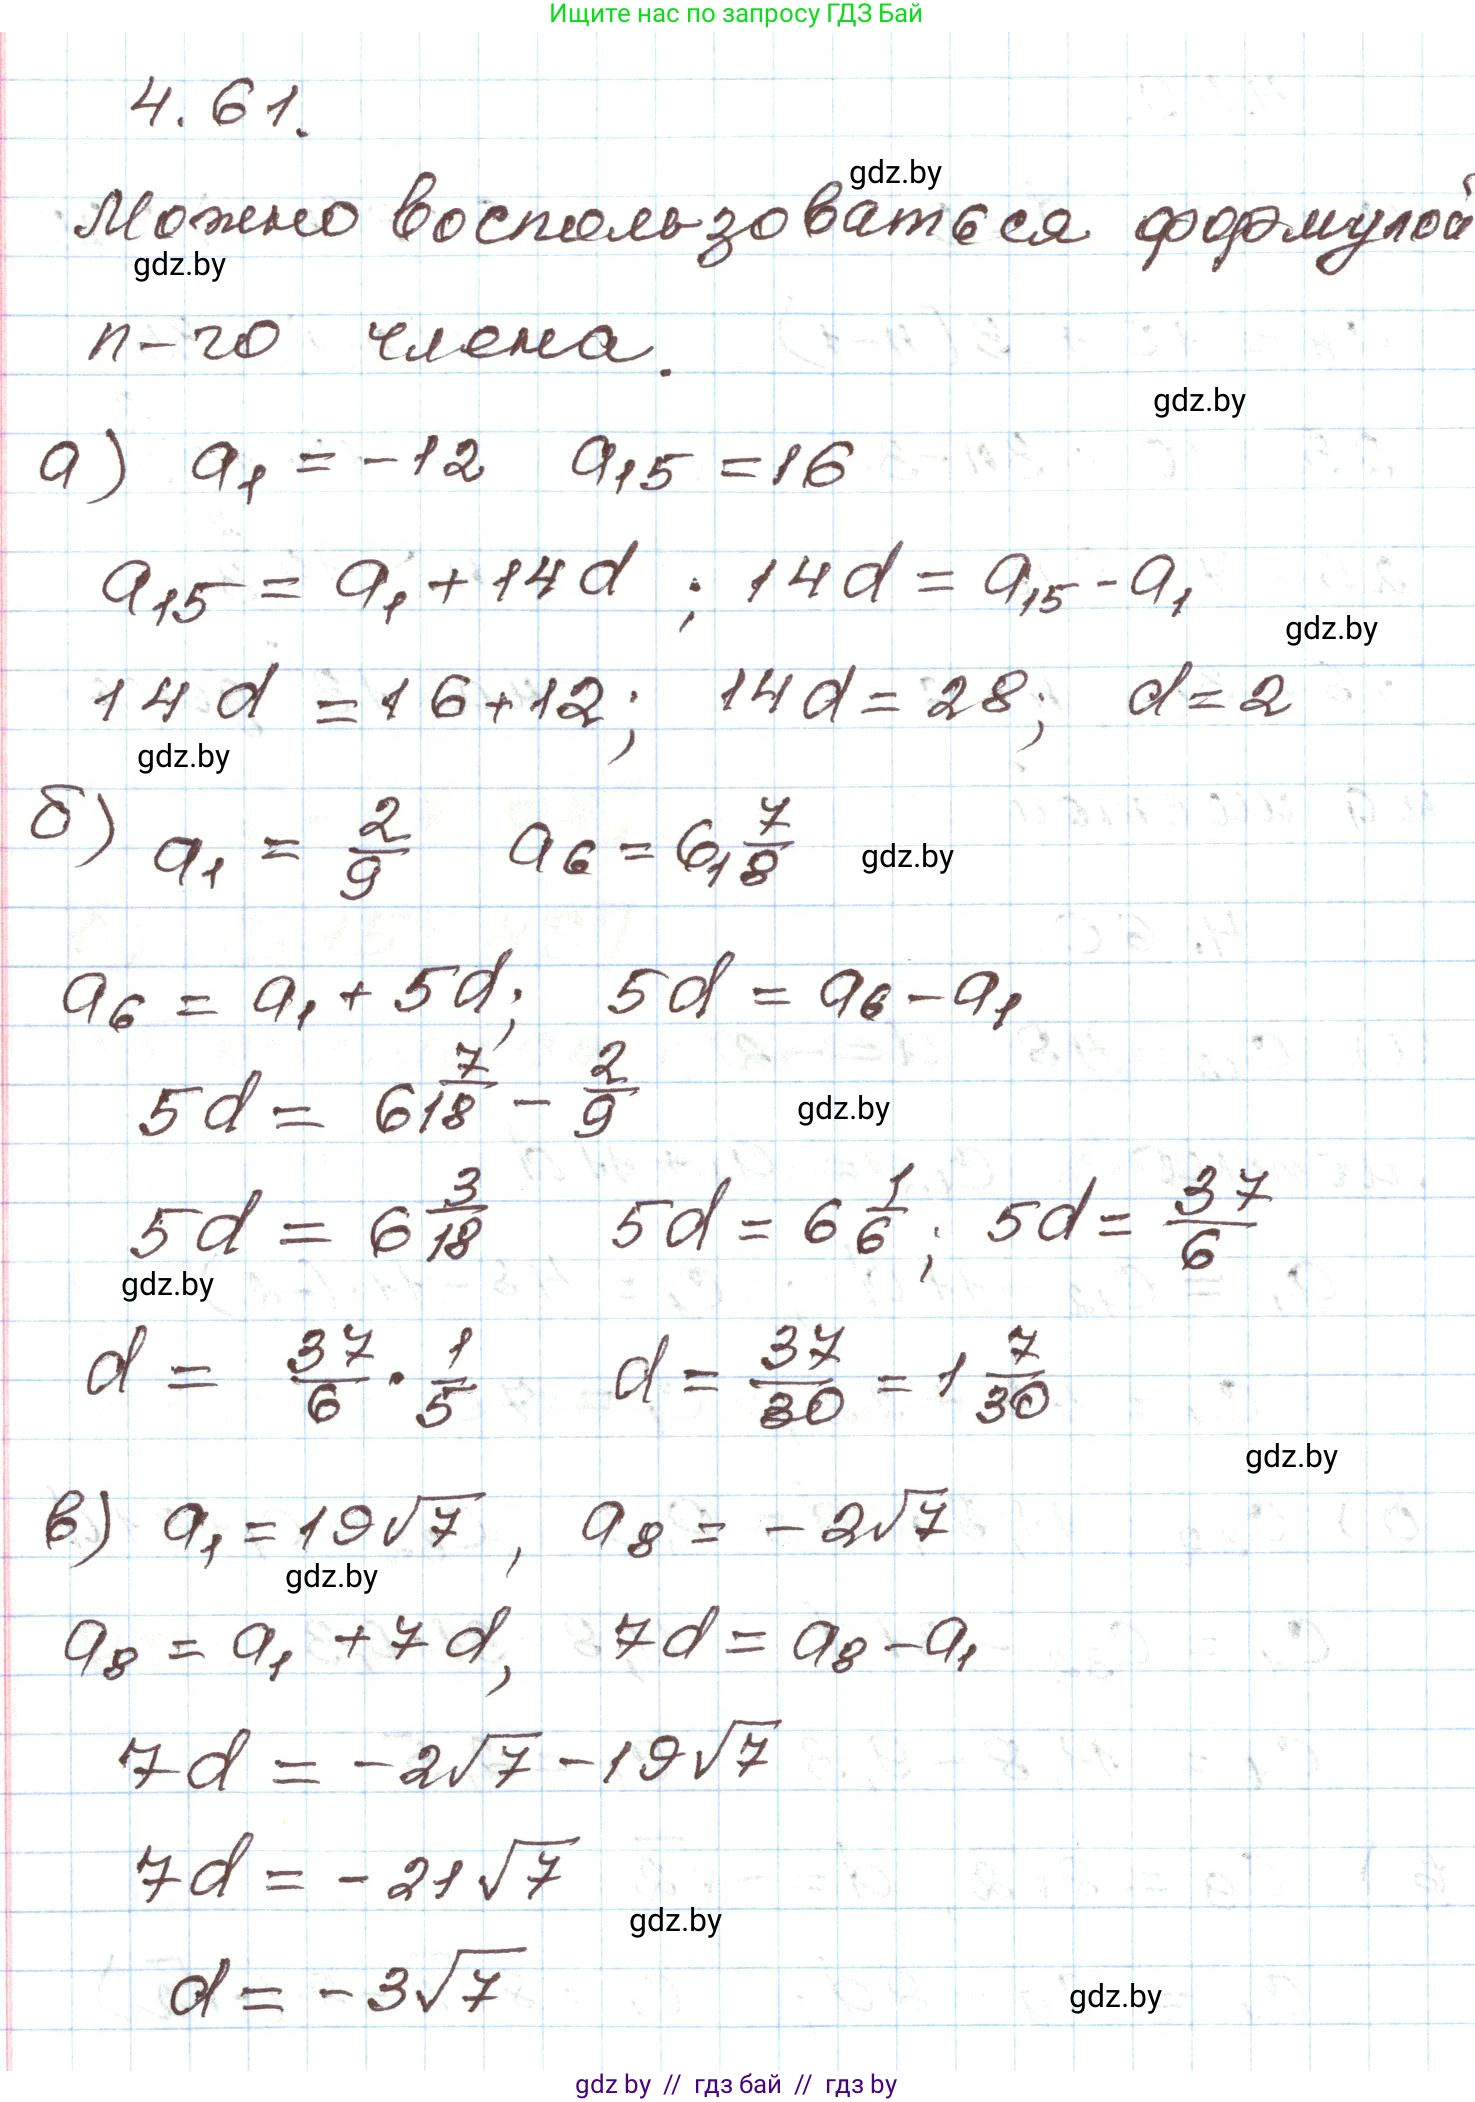 Ищите нас по запросу ГДЗ Бай
4.61.
gdz.by
Можно воспользоваться формулой
gdz.by
n-го члена.
gdz.by
а) a₁ = -12 a₁₅ = 16
a₁₅ = a₁ + 14d ; 14d = a₁₅ - a₁
gdz.by
14d = 16 + 12; 14d = 28; d = 2
gdz.by
б) a₁ = 2/9 a₆ = 6 7/18 gdz.by
a₆ = a₁ + 5d; 5d = a₆ - a₁
5d = 6 7/18 - 2/9 gdz.by
5d = 6 3/18 5d = 6 1/6; 5d = 37/6
gdz.by
d = 37/6 · 1/5 d = 37/30 = 1 7/30
gdz.by
в) a₁ = 19√7, a₈ = -2√7
gdz.by
a₈ = a₁ + 7d, 7d = a₈ - a₁
7d = -2√7 - 19√7
7d = -21√7
gdz.by
d = -3√7
gdz.by
gdz by // гдз бай // гдз by